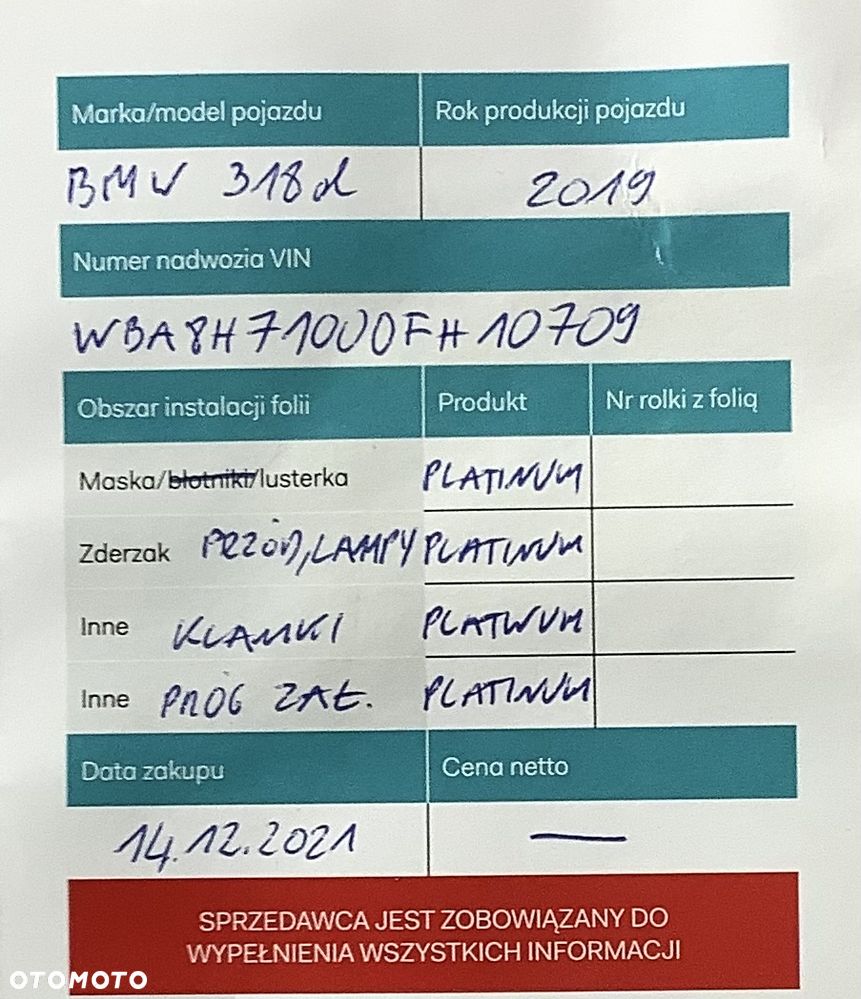 Marka/model pojazdu Rok produkcji pojazdu
BMW 318d 2019
Numer nadwozia VIN
WBA8H71000FH10709
Obszar instalacji folii Produkt Nr rolki z folią
Maska/błotniki/lusterka PLATINUM
Zderzak PRZÓD, LAMPY PLATINUM
Inne KLAMKI PLATINUM
Inne PRÓG ZAŁ. PLATINUM
Data zakupu Cena netto
14.12.2021 —
SPRZEDAWCA JEST ZOBOWIĄZANY DO
WYPEŁNIENIA WSZYSTKICH INFORMACJI
OTOMOTO